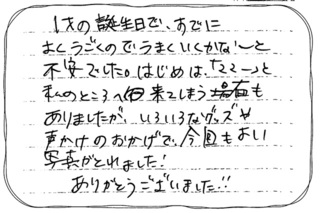 1才の誕生日で、すでに
よくうごくのでうまくいくかな〜と
不安でした。はじめは、たたーっと
私のところへ来てしまう場面も
ありましたが、いろいろなグッズや
声かけのおかげで、今回もよい
写真がとれました!
ありがとうございました!!